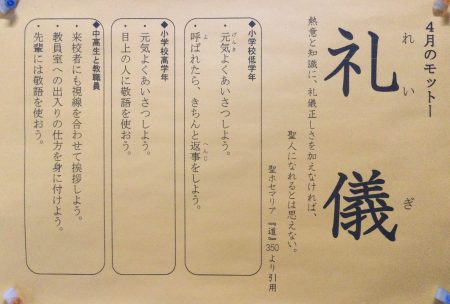 4月のモットー
れいぎ
礼儀
熱意と知識に、礼儀正しさを加えなければ、
聖人になれるとは思えない。
聖ホセマリア『道』350より引用
◆小学校低学年
げんき
・元気よくあいさつしよう。
よ へんじ
・呼ばれたら、きちんと返事をしよう。
◆小学校高学年
・元気よくあいさつしよう。
・目上の人に敬語を使おう。
◆中高生と教職員
・来校者にも視線を合わせて挨拶しよう。
・教員室への出入りの仕方を身に付けよう。
・先輩には敬語を使おう。